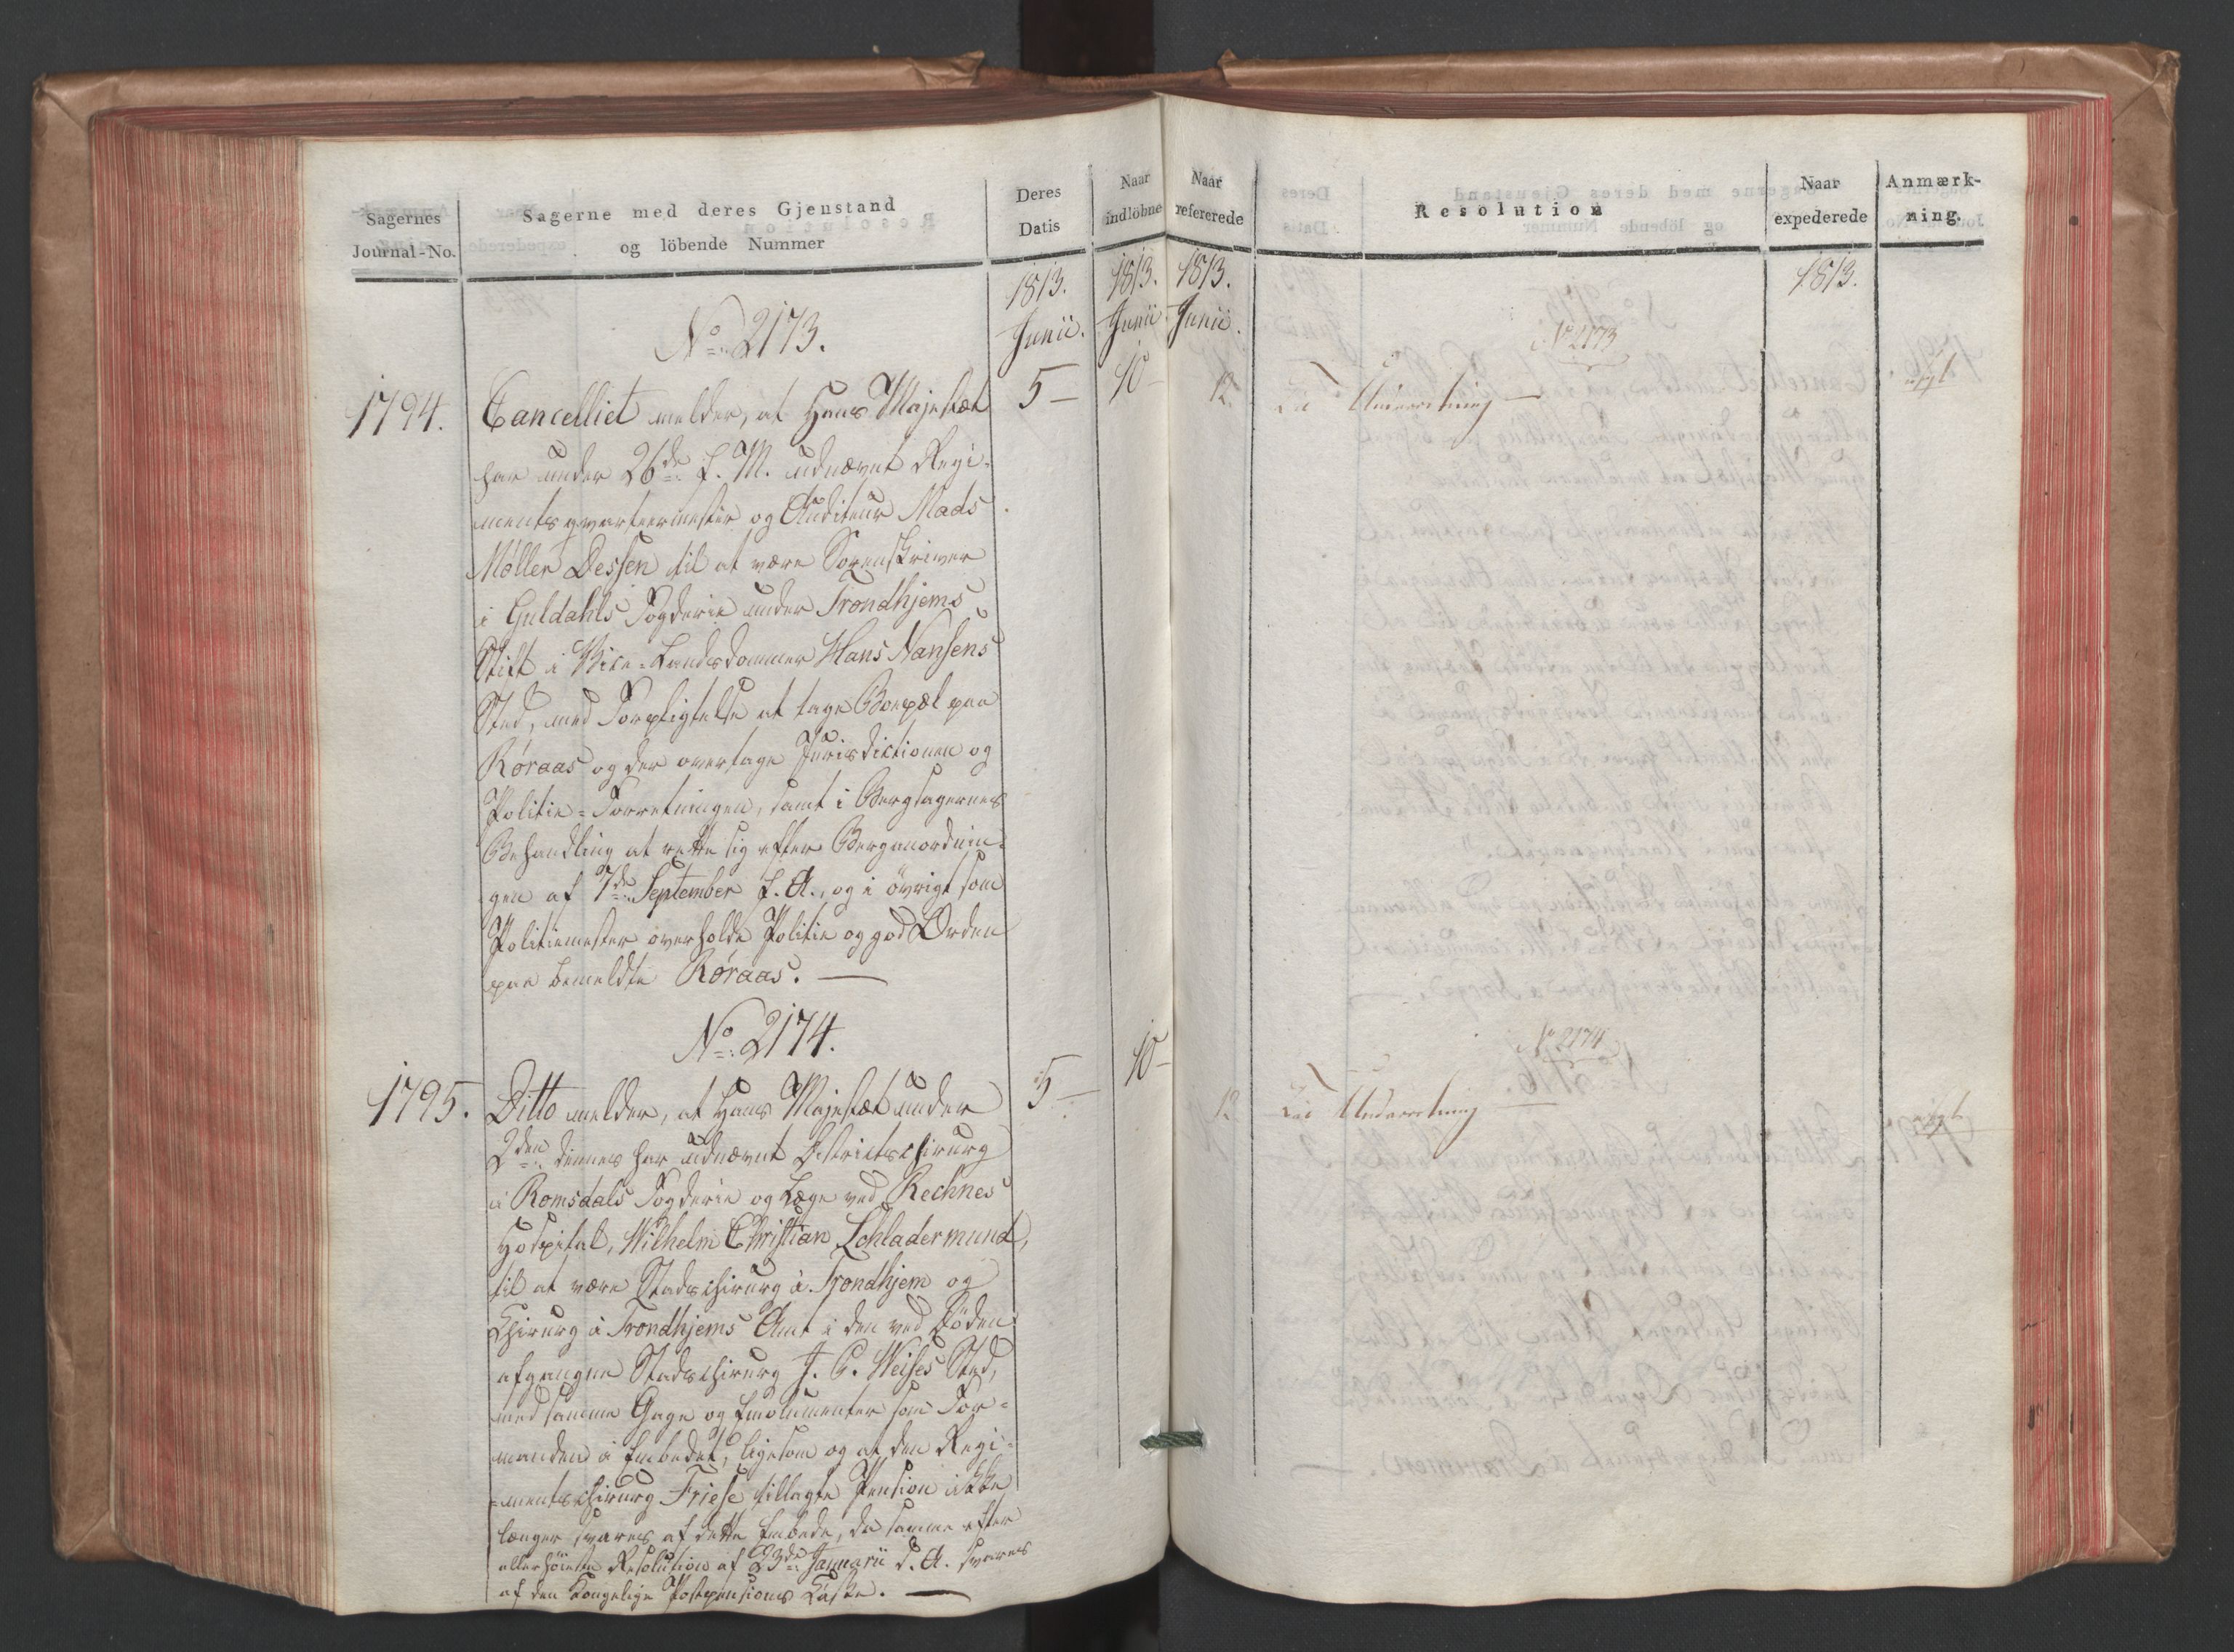 Sagernes
Journal-No.
Sagerne med deres Gjenstand
og löbende Nummer
Deres
Datis
Naar
indlöbne
Naar
refererede
Resolution
Naar
expederede
Anmærk-
ning.
1813.
Junii.
1813.
Junii
1813.
Junii.
1813.
No. 2173.
1794.
Cancelliet melder, at Hans Majestæt
har under 26de f. M. udnævnt Regi-
mentsqvarteermester og Auditeur Mads
Møller Dessen til at være Sorenskriver
i Guldahls Fogderie under Trondhjems
Stift i Vice-Landsdommer Hans Nansens
Sted, med Forpligtelse at tage Boepæl paa
Røraas og der overtage Jurisdictionen og
Politie-Forretningen, samt i Bergsagernes
Behandling at rette sig efter Berganordnin-
gen af 7de September f. A., og i övrigt som
Politiemester overholde Politie og god Orden
paa bemeldte Røraas.
5
10
12
No 2173
Til Underretning
No. 2174.
1795.
Ditto melder, at Hans Majestæt under
2den dennes har udnævnt Districtschirurg
i Romsdals Fogderie og Læge ved Rechnes
Hospital, Wilhelm Christian Schladermund,
til at være Stadschirurg i Trondhjem og
Chirurg i Trondhjems Amt i den ved Döden
afgangne Stadschirurg J. C. Weises Sted,
med samme Gage og Emolumenter som For-
manden i Embedet, ligesom og at den Regi-
mentschirurg Friese tillagte Pension ikke
længer svares af dette Embede, da samme efter
allerhöieste Resolution af 23de Januarii d. A. svares
af den Kongelige Postpensions Casse.
5
10
12
No 2174
Til Underretning